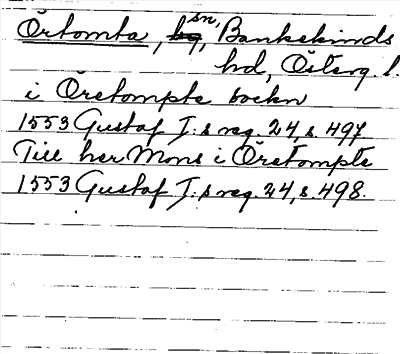 Örtomta, sn, Bankekinds
hd, Österg. l.
i Öretompte sockn
1553 Gustaf I:s reg. 24, s. 497
Till her Mons i Öretompte
1553 Gustaf I:s reg. 24, s. 498.